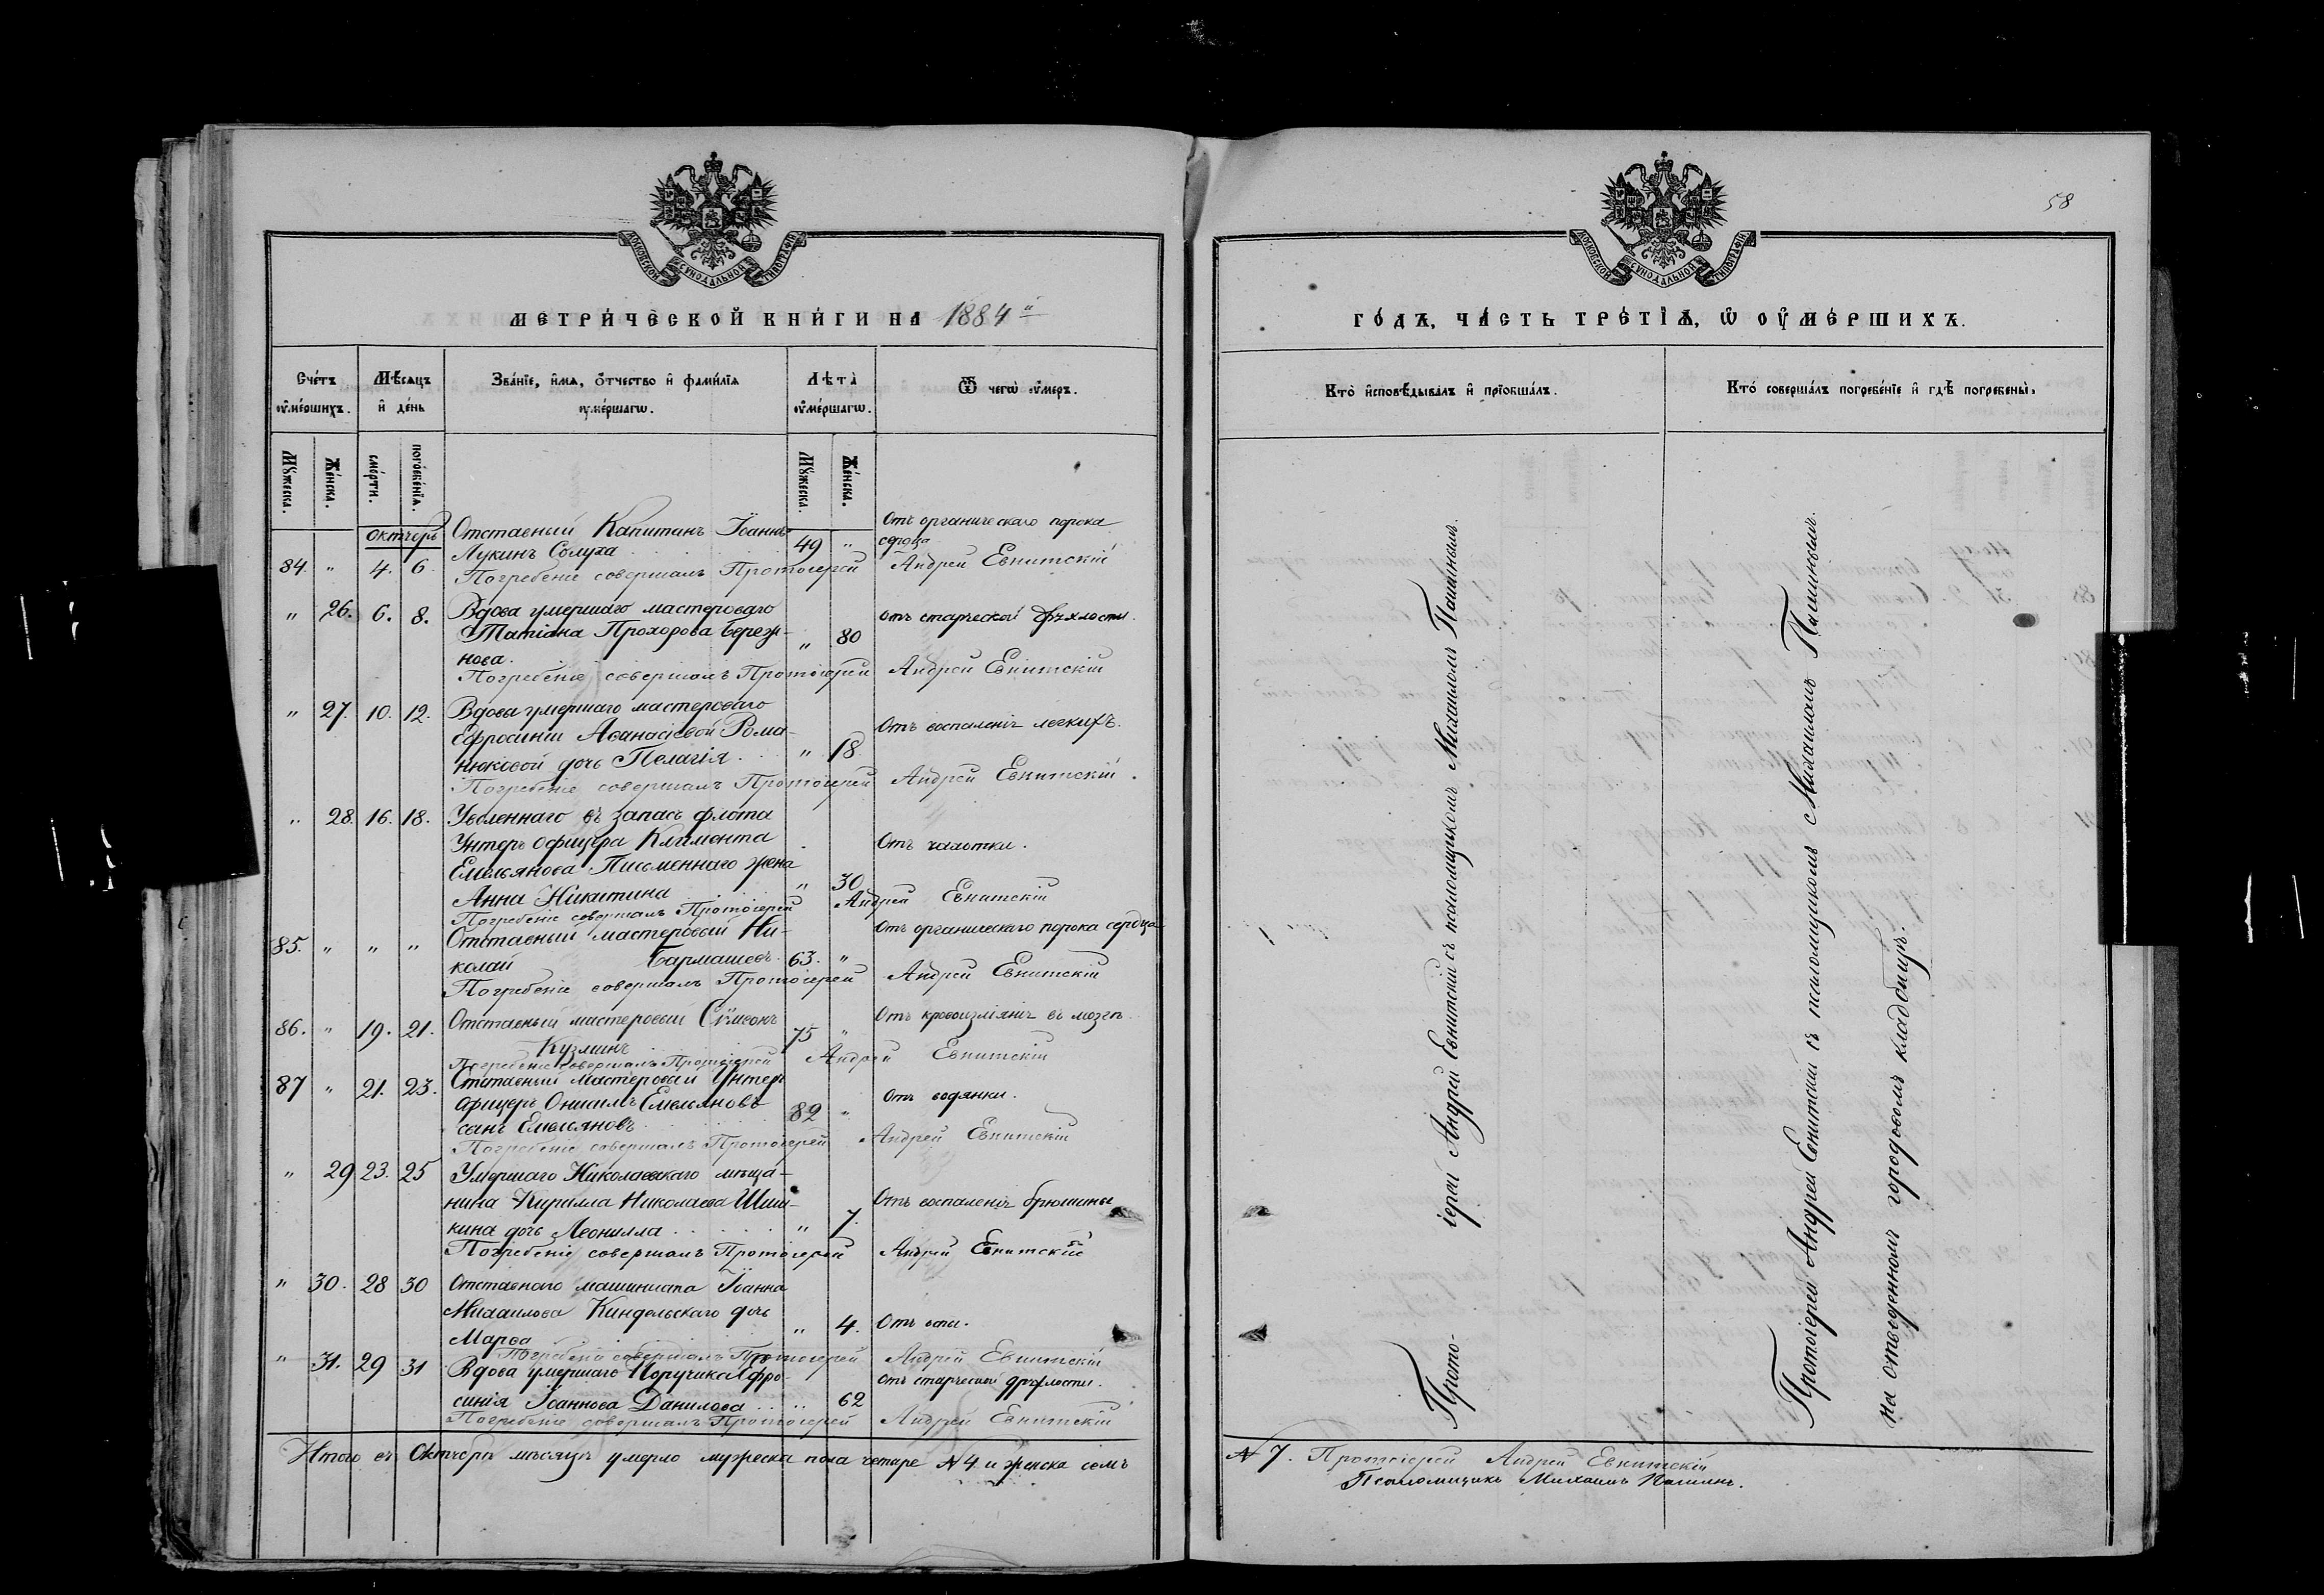 МОСКОВСКОЙ СѴНОДАЛЬНОЙ ТИПОГРАФІИ
МЕТРИЧЕСКОЙ КНИГИ НА 1884й
Счетъ ᲂумершихъ.
Мѣсяцъ и день
Званіе, имя, ѻтчество и фамилія ᲂумершагѡ.
Лѣта ᲂумершагѡ.
Ѿ чегѡ ᲂумеръ.
Мꙋжеска.
Женска.
смерти.
погребенія.
Мꙋжеска.
Женска.
Октябрь
Отставный Капитанъ Іоаннъ Отъ органическаго порока
Лукинъ Солуха 49 " сердца
84. " 4. 6. Погребеніе совершалъ Протоіерей Андрей Евнитскій
" 26. 6. 8. Вдова умершаго мастероваго отъ старческой дряхлости.
Татіана Прохорова Береж- " 80
нова.
Погребеніе совершалъ Протоіерей Андрей Евнитскій
" 27. 10. 12. Вдова умершаго мастероваго
Ефросиніи Аѳанасіевой Рома- Отъ воспаленія легкихъ.
нюковой дочь Пелагія. " 18
Погребеніе совершалъ Протоіерей Андрей Евнитскій.
" 28. 16. 18. Уволеннаго въ запасъ флота
Унтеръ офицера Климента Отъ чахотки.
Емельянова Писменнаго жена
Анна Никитина " 30
Погребеніе совершалъ Протоіерей Андрей Евнитскій
85. " " " Отставный мастеровый Ни- Отъ органическаго порока сердца
колай Бармашевъ. 63. "
Погребеніе совершалъ Протоіерей Андрей Евнитскій
86. " 19. 21. Отставный мастеровый Сѵмеонъ Отъ кровоизліянія въ мозгъ.
Кузминъ 75 "
Погребеніе совершалъ Протоіерей Андрей Евнитскій
87 " 21. 23. Отставный мастеровый Унтеръ
офицеръ Онисимъ Емельяновъ 82 " Отъ водянки.
сынъ Емельяновъ.
Погребеніе совершалъ Протоіерей Андрей Евнитскій
" 29 23. 25 Умершаго Николаевскаго мѣща-
нина Кирилла Николаева Шиш- Отъ воспаленія брюшины
кина дочь Леонилла " 7.
Погребеніе совершалъ Протоіерей Андрей Евнитскій
" 30. 28 30 Отставнаго машиниста Іоанна
Михаилова Киндельскаго дочь
Марѳа " 4. Отъ оспы.
Погребеніе совершалъ Протоіерей Андрей Евнитскій
" 31. 29 31 Вдова умершаго Поручика Ефро- отъ старческой дряхлости.
синія Іоаннова Данилова " 62
Погребеніе совершалъ Протоіерей Андрей Евнитскій
Итого въ Октябрѣ мѣсяцѣ умерло мужеска пола четыре № 4 и женска семь
58
МОСКОВСКОЙ СѴНОДАЛЬНОЙ ТИПОГРАФІИ
ГОДЪ, ЧАСТЬ ТРЕТІѦ, Ѡ ОУМЕРШИХЪ.
Кто исповѣдывалъ и пріобщалъ.
Кто совершалъ погребеніе и гдѣ погребены.
Прото- іерей Андрей Евнитскій съ псаломщикомъ Михаиломъ Пашинымъ.
Протоіерей Андрей Евнитскій съ псаломщикомъ Михаиломъ Пашинымъ.
на отведенномъ городовомъ кладбищѣ.
№ 7. Протоіерей Андрей Евнитскій
Псаломщикъ Михаилъ Пашинъ.